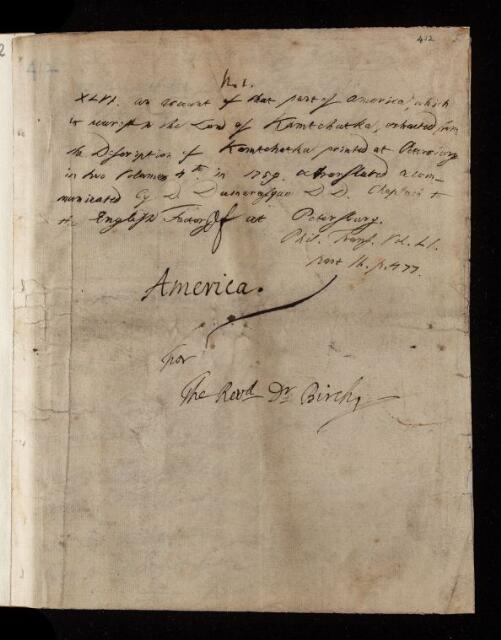 412
No. 1.
XLVI. an account of that part of America, which
is nearest to the Land of Kamtchatka, extracted from
the Description of Kamtchatka printed at Petersburg
in two Volumes 4to. in 1759. & translated & com-
municated by D. Dumaresque D. D. Chaplain to
the English Factory at Petersburg.
Phil. Trans. Vol. LI.
Part II. p. 477.
America.
For
The Revd. Dr. Birch,